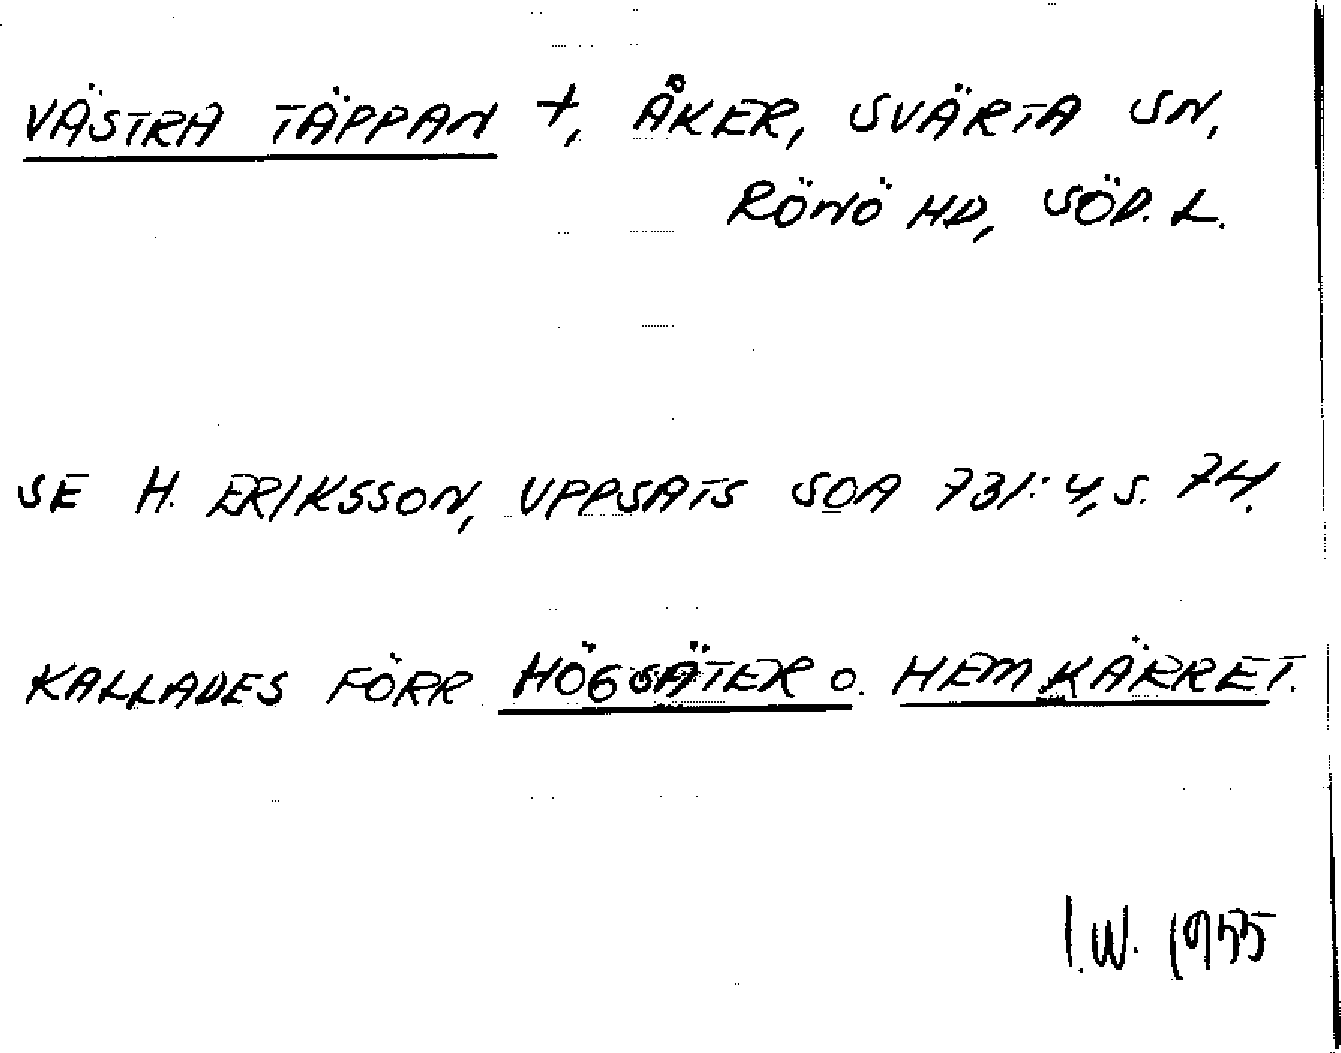 VÄSTRA TÄPPAN +, ÅKER, SVÄRTA SN,
RÖNÖ HD, SÖD. L.
SE H. ERIKSSON, UPPSATS SOA 731:4, S. 74.
KALLADES FÖRR HÖGSÄTER O. HEMKÄRRET.
I.W. 1955